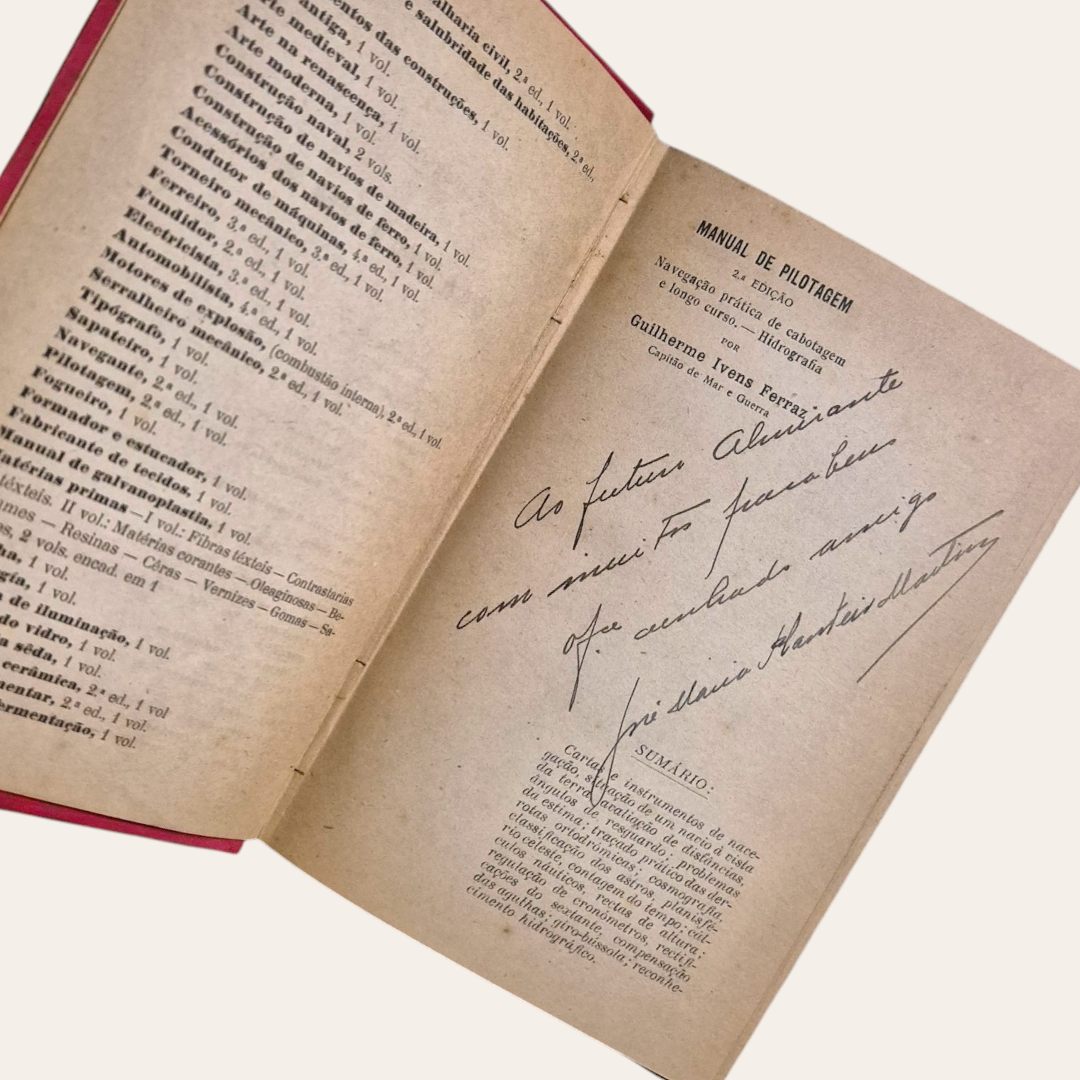 alharia civil, 2.ª ed., 1 vol.
e salubridade das habitações, 2.ª ed.,
entos das construções, 1 vol.
antiga, 1 vol.
te medieval, 1 vol.
Arte na renascença, 1 vol.
Arte moderna, 1 vol.
Construção naval, 2 vols.
Construção de navios de madeira, 1 vol.
Construção de navios de ferro, 1 vol.
Acessórios dos navios de ferro, 1 vol.
Condutor de máquinas, 4.ª ed., 1 vol.
Torneiro mecânico, 3.ª ed., 1 vol.
Ferreiro, 3.ª ed., 1 vol.
Fundidor, 2.ª ed., 1 vol.
Electricista, 3.ª ed., 1 vol.
Automobilista, 4.ª ed., 1 vol.
Motores de explosão, (combustão interna), 2.ª ed., 1 vol.
Serralheiro mecânico, 2.ª ed., 1 vol.
Tipógrafo, 1 vol.
Sapateiro, 1 vol.
Navegante, 2.ª ed., 1 vol.
Pilotagem, 2.ª ed., 1 vol.
Fogueiro, 1 vol.
Formador e estucador, 1 vol.
Fabricante de tecidos, 1 vol.
Manual de galvanoplastia, 1 vol.
atérias primas—I vol.: Fibras téxteis — Contrastarias
téxteis. II vol.: Matérias corantes — Oleaginosas — Be-
umes — Resinas — Cêras — Vernizes — Gomas — Sa-
es, 2 vols. encad. em 1
ha, 1 vol.
gia, 1 vol.
de iluminação, 1 vol.
do vidro, 1 vol.
a sêda, 1 vol.
cerâmica, 2.ª ed., 1 vol
mentar, 2.ª ed., 1 vol.
ermentação, 1 vol.
MANUAL DE PILOTAGEM
2.ª EDIÇÃO
Navegação prática de cabotagem
e longo curso. — Hidrografia
POR
Guilherme Ivens Ferraz
Capitão de Mar e Guerra
Ao futuro Almirante
com muitos parabens
ofce cunhado amigo
José Maria Martins
SUMÁRIO:
Cartas e instrumentos de nave-
gação, situação de um navio à vista
da terra, avaliação de distâncias,
ângulos de resguardo; problemas
da estima; traçado prático das der-
rotas ortodrómicas; cosmografia,
classificação dos astros, planisfé-
rio celeste, contagem do tempo; cál-
culos náuticos, rectas de altura;
regulação de cronómetros, rectifi-
cações do sextante, compensação
das agulhas; giro-bússola; reconhe-
cimento hidrográfico.